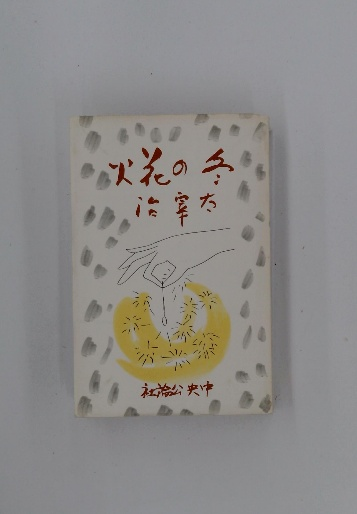 冬の花火
太宰治
中央公論社